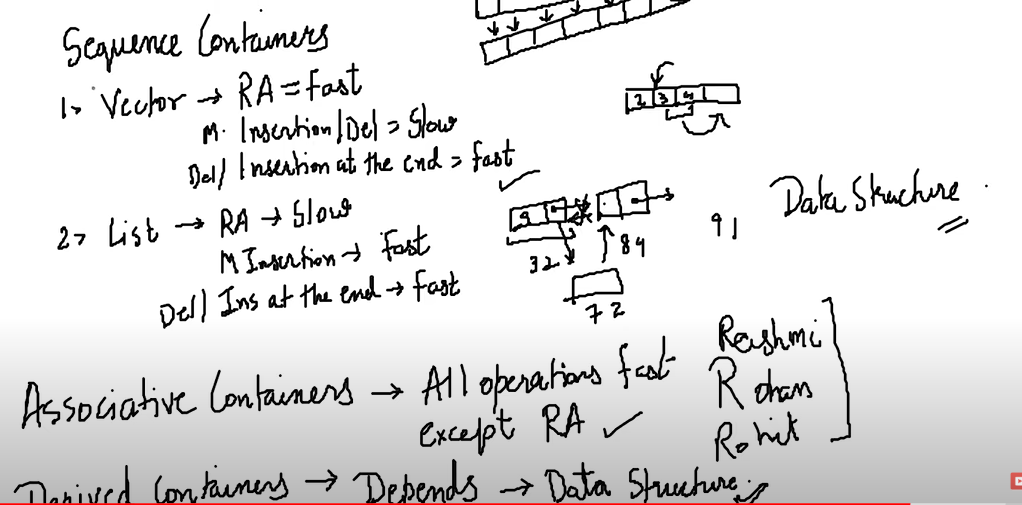 Sequence Containers
1> Vector → RA = Fast
M. Insertion/Del = Slow
Del/ Insertion at the end = fast
2 3 4
2> List → RA → Slow
M Insertion → Fast
Del/ Ins at the end → fast
9
32
84
72
91
Data Structure
Associative Containers → All operations fast
except RA
Rashmi
Rohan
Rohit
Derived Containers → Depends → Data Structure